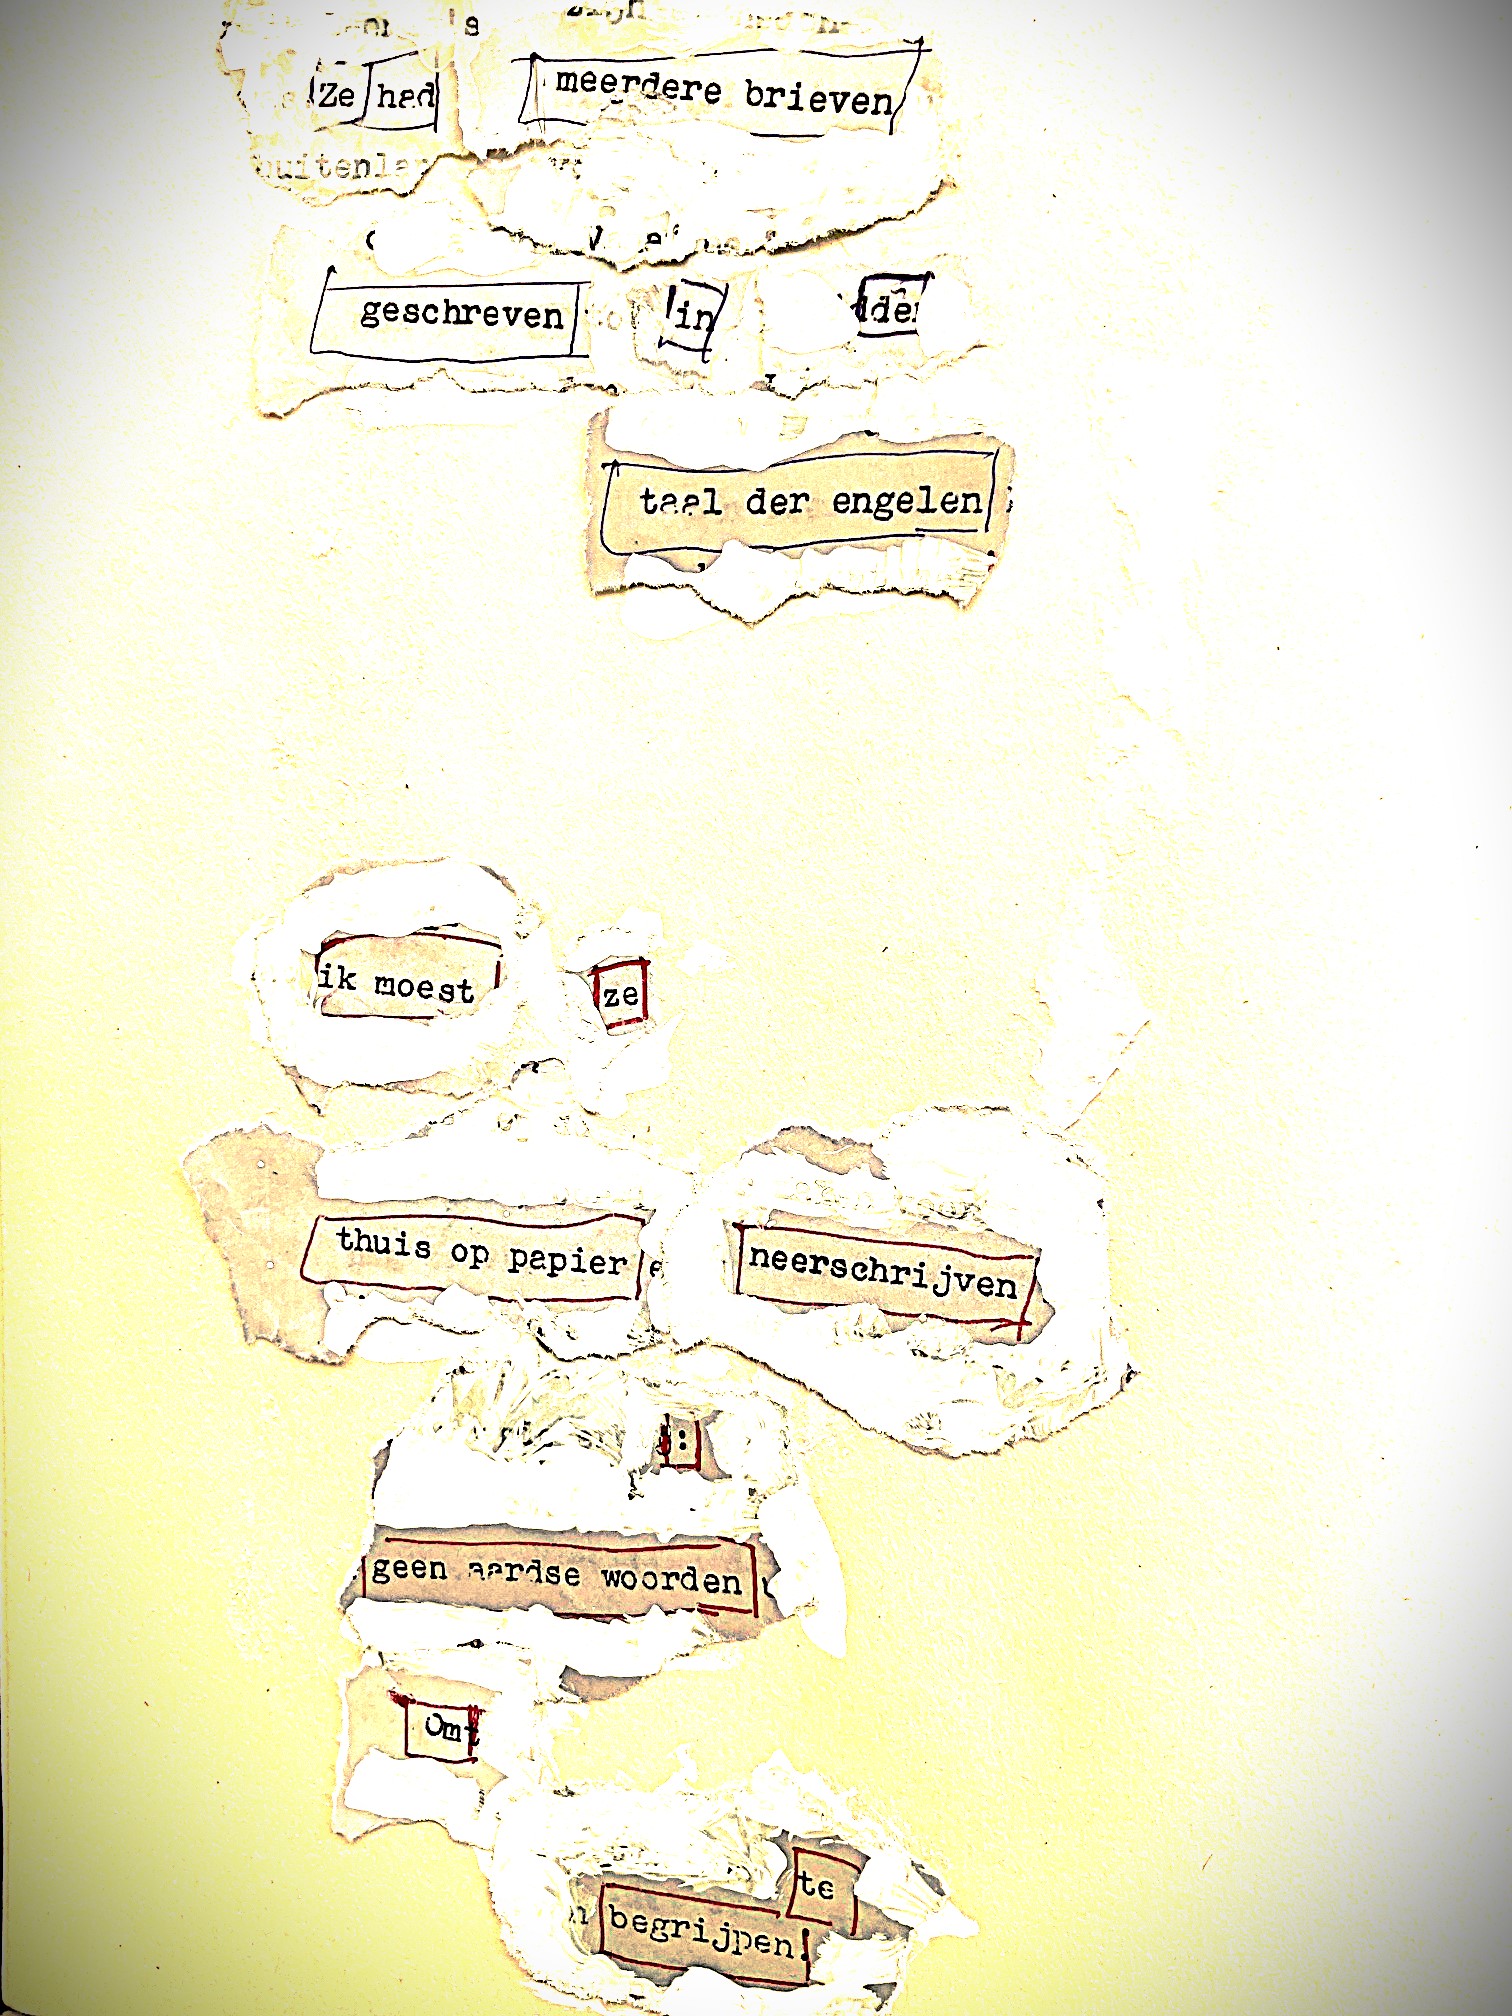 Ze had meerdere brieven
geschreven in de
taal der engelen
ik moest ze
thuis op papier neerschrijven
:
geen aardse woorden
Om
te
begrijpen.